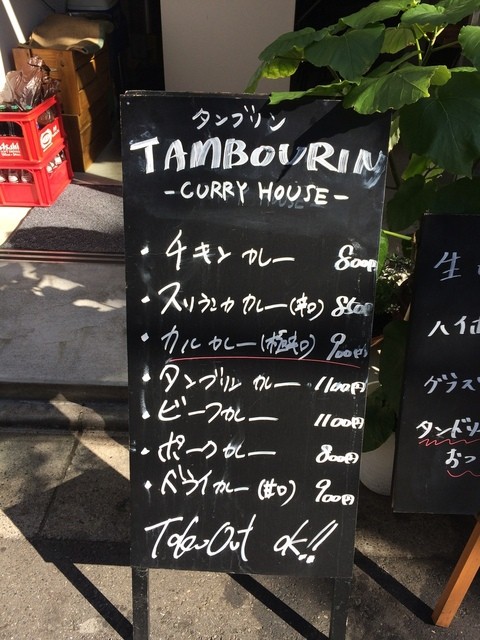 タンブリン
TAMBOURIN
-CURRY HOUSE-
・チキンカレー 800円
・スリランカカレー(辛口) 850円
・カルカレー(極辛口) 900円
・タンブリンカレー 1100円
・ビーフカレー 1100円
・ポークカレー 800円
・ドライカレー(辛口) 900円
TakeOut ok!!
生
ハイボ
グラス
タンドリ
おつ
Asahi